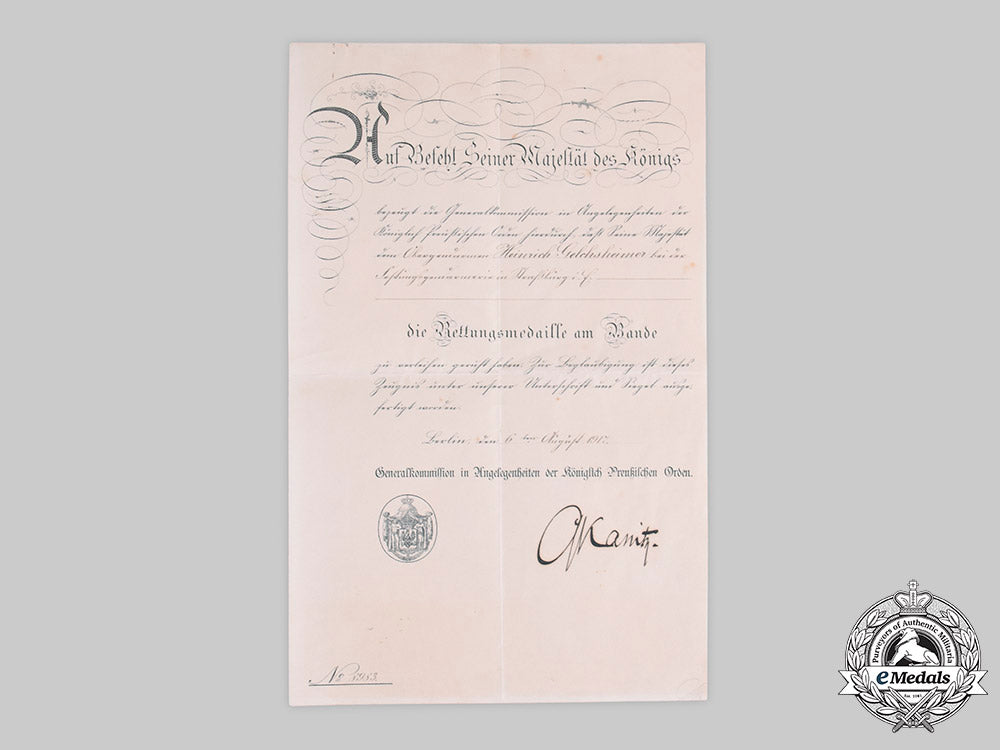 Auf Befehl Seiner Majestät des Königs
bezeugt die Generalkommission in Angelegenheiten der
Königlich Preußischen Orden hierdurch, daß Seine Majestät
dem Obergendarmen Heinrich Gelchshamer bei der
Festungsgendarmerie in Straßburg i. E.
die Rettungsmedaille am Bande
zu verleihen geruht haben. Zur Beglaubigung ist dieses
Zeugnis unter unserer Unterschrift und Siegel ausge-
fertigt worden.
Berlin, den 6ten August 1917.
Generalkommission in Angelegenheiten der Königlich Preußischen Orden.
GKanitz.
No
Purveyors of Authentic Militaria
eMedals